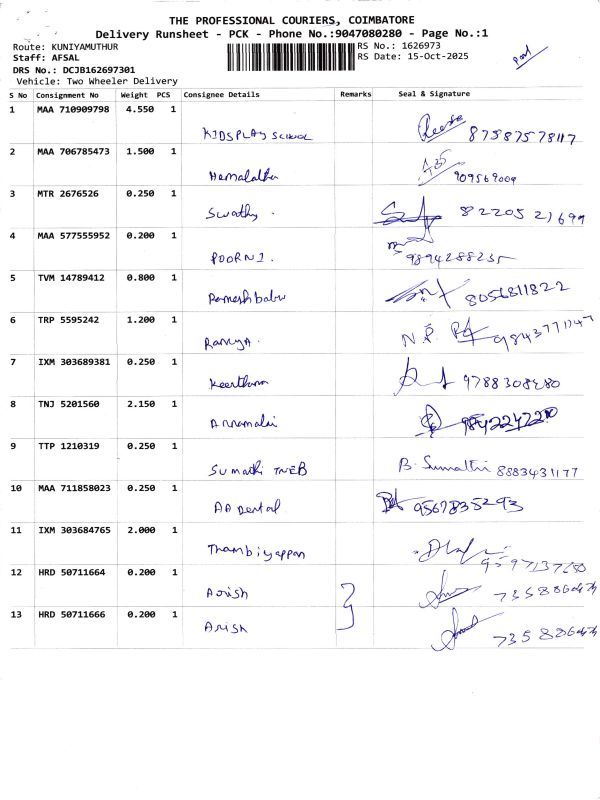 THE PROFESSIONAL COURIERS, COIMBATORE
Delivery Runsheet - PCK - Phone No.:9047080280 - Page No.:1
Route: KUNIYAMUTHUR
RS No.: 1626973
Staff: AFSAL
RS Date: 15-Oct-2025
DRS No.: DCJB162697301
Vehicle: Two Wheeler Delivery
S No Consignment No Weight PCS Consignee Details Remarks Seal & Signature
1 MAA 710909798 4.550 1
KIDSPLAY SCHOOL 87587578117
2 MAA 706785473 1.500 1
Hemalatha 909569009
3 MTR 2676526 0.250 1
Swathy. 8220521699
4 MAA 577555952 0.200 1
POORNI. 9894288235
5 TVM 14789412 0.800 1
Rameshbabu 8056811822
6 TRP 5595242 1.200 1
Ramya. N.P. 9843771147
7 IXM 303689381 0.250 1
Keerthana 9788308480
8 TNJ 5201560 2.150 1
Annamalai
9 TTP 1210319 0.250 1
Sumathi TNEB B. Sumathi 8883431177
10 MAA 711858023 0.250 1
AA Dental 9567835293
11 IXM 303684765 2.000 1
Thambiyappan 9597137280
12 HRD 50711664 0.200 1
Arish
13 HRD 50711666 0.200 1
Arish